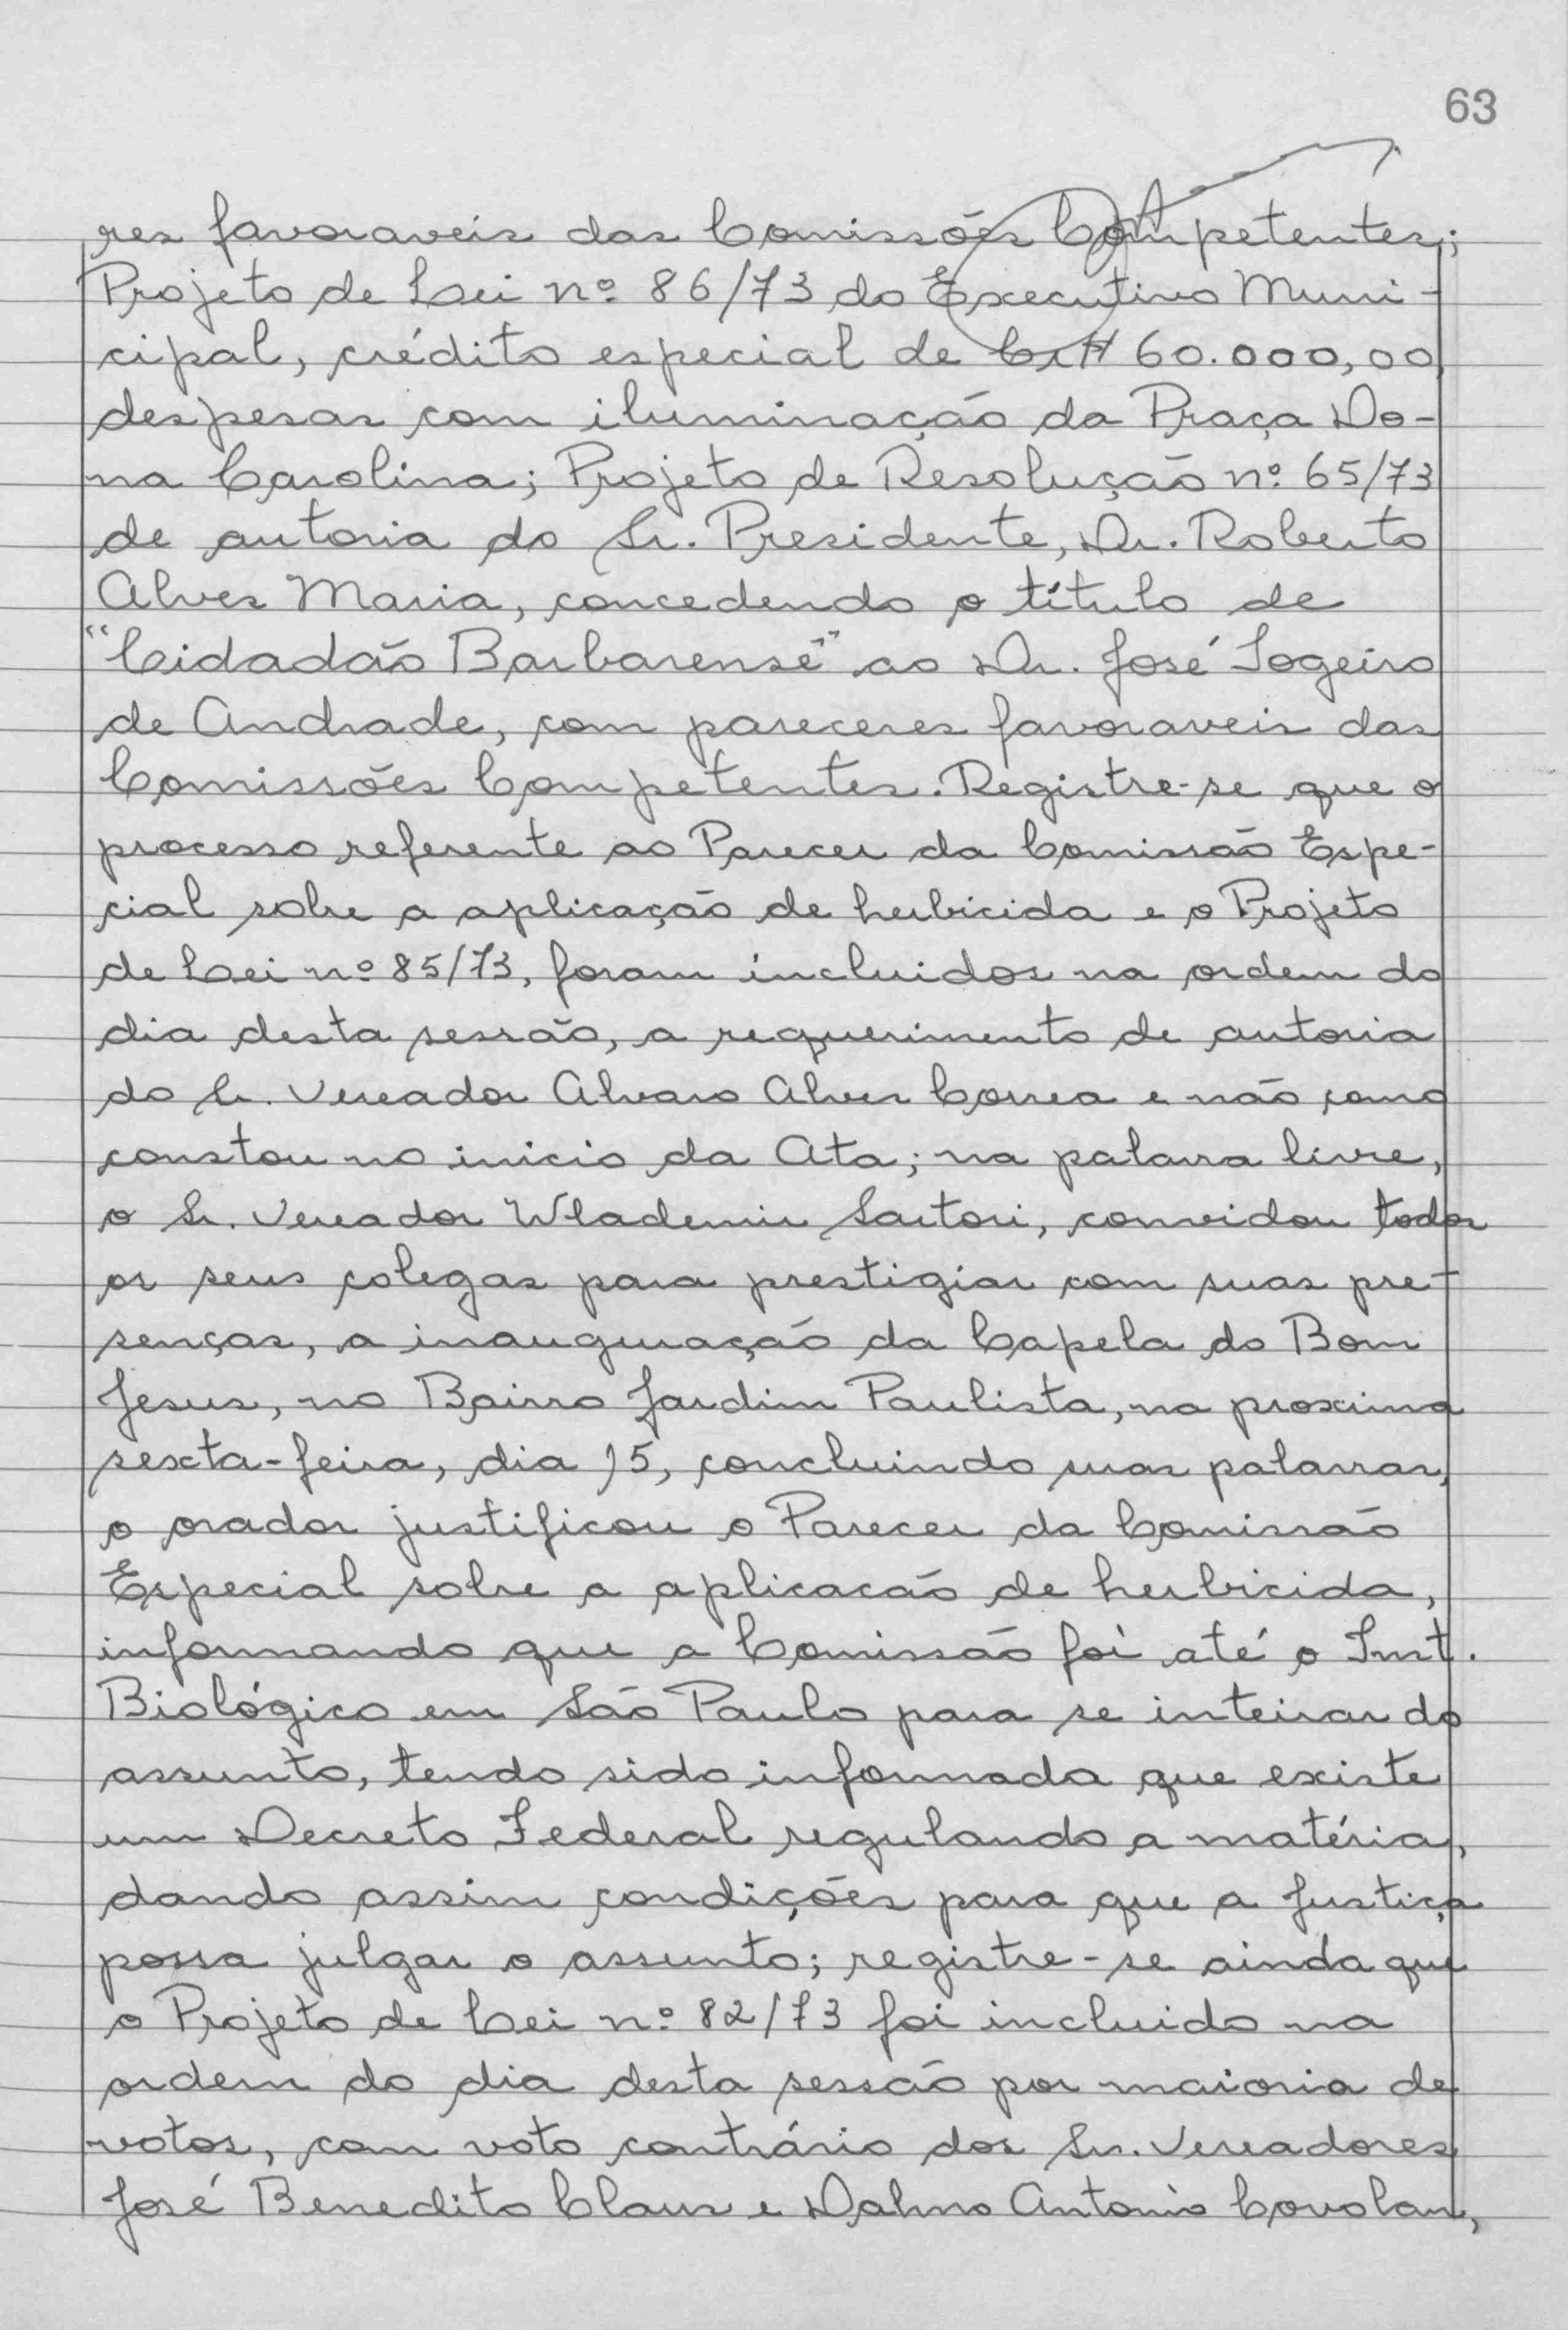 63
res favoraveis das Comissões Competentes;
Projeto de Lei nº 86/73 do Executivo Muni-
cipal, crédito especial de Cr$ 60.000,00,
despesas com iluminação da Praça Do-
na Carolina; Projeto de Resolução nº 65/73
de autoria do Sr. Presidente, Dr. Roberto
Alves Maria, concedendo o título de
"Cidadão Barbarense" ao Dr. José Logeiro
de Andrade, com pareceres favoraveis das
Comissões Competentes. Registre-se que o
processo referente ao Parecer da Comissão Espe-
cial sobre a aplicação de herbicida e o Projeto
de Lei nº 85/73, foram incluidos na ordem do
dia desta sessão, a requerimento de autoria
do Sr. Vereador Alvaro Alves Correa e não como
constou no inicio da Ata; na palavra livre,
o Sr. Vereador Wlademir Sartori, convidou todos
os seus colegas para prestigiar com suas pre-
senças, a inauguração da Capela do Bom
Jesus, no Bairro Jardim Paulista, na proxima
sexta-feira, dia 15, concluindo suas palavras,
o orador justificou o Parecer da Comissão
Especial sobre a aplicacão de herbicida,
informando que a Comissão foi até o Inst.
Biológico em São Paulo para se inteirar do
assunto, tendo sido informada que existe
um Decreto Federal regulando a matéria,
dando assim condições para que a Justiça
possa julgar o assunto; registre-se ainda que
o Projeto de Lei nº 82/73 foi incluido na
ordem do dia desta sessão por maioria de
votos, com voto contrário dos Srs. Vereadores
José Benedito Claus e Dalmo Antonio Covolan,